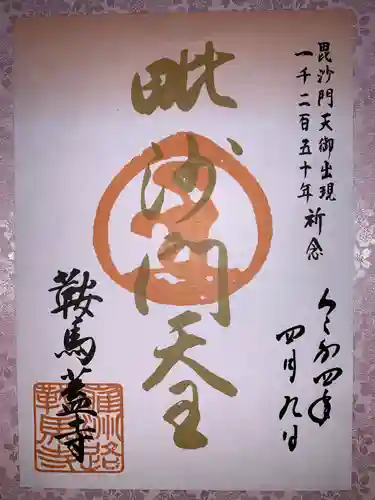 毘沙門天御出現
一千二百五十年祈念
毗沙門天王
令和四年
四月九日
鞍馬蓋寺